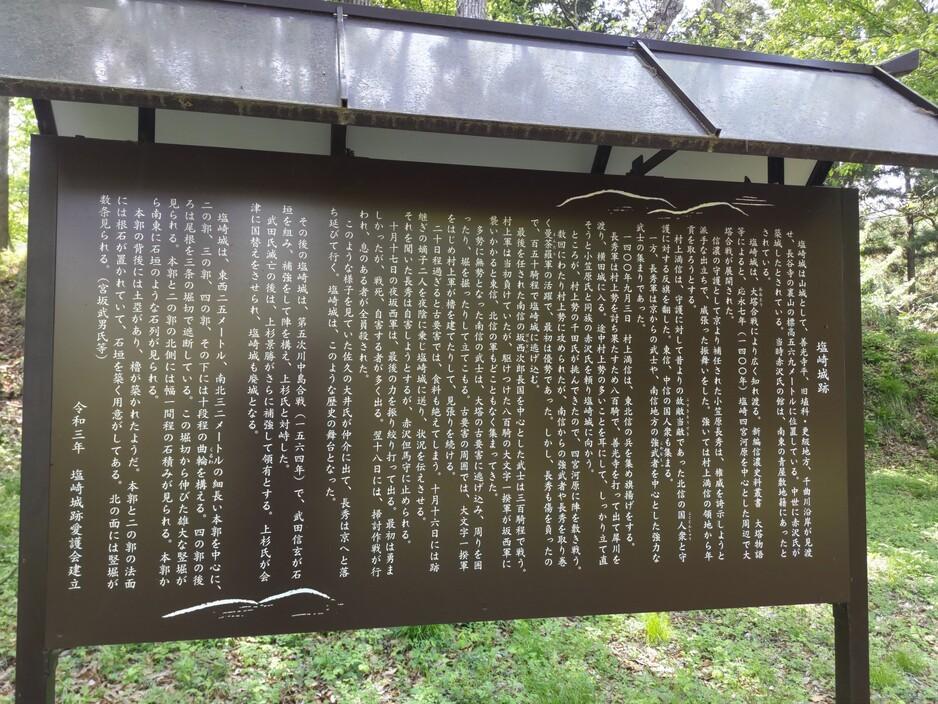 塩崎城跡
塩崎城は山城として、善光寺平、旧埴科・更級地方、千曲川沿岸が見渡
せ、長谷寺の裏山の標高五六九メートルに位置している。中世に赤沢氏が
築城したとされている。当時赤沢氏の館は、南東の青屋敷地籍にあったと
されている。
塩崎城は、大塔合戦により広く知れ渡る。新編信濃史料叢書 大塔物語
等によると、応永七年(一四〇〇年)塩崎四宮河原を中心とした周辺で大
塔合戦が展開された。
信濃の守護として京より補任された小笠原長秀は、権威を誇示しようと
派手な出立ちで、威張った振舞いをした。強いては村上満信の領地から年
貢を取ろうとする。
村上満信は、守護に対して昔よりの故敵当敵であった北信の国人衆と守
護に対する反旗を翻した。東信、中信の国人衆も集まる。
一方、長秀軍は京からの武士や、南信地方の強武者を中心とした強力な
武士の集まりであった。
一四〇〇年九月三日 村上満信は、東北信の兵を集め旗揚げをする。
長秀軍は村上勢を討ち果たすため八百騎で、善光寺を打って出て犀川を
渡り、横田城に入る。途中村上勢の多いことを耳にして、しっかり立て直
そうと小笠原氏と同族の赤沢氏を頼り塩崎城に向かう。
ところが、村上勢の千田氏が挑んできたので、四宮河原に陣を敷き戦う。
数回にわたり村上勢に攻められたが、南信からの強武者や長秀を取り巻
く曼荼羅軍の活躍で、最初は優勢であった。しかし、長秀も傷を負ったの
で、百五十騎程で塩崎城に逃げ込む。
最後を任された南信の坂西次郎長国を中心とした武士は三百騎程で戦う。
村上軍は当初負けていたが、駆けつけた八百騎の大文字一揆軍が坂西軍に
襲いかかると東信、北信の軍もどことなく集まってきた。
多勢に無勢となった南信の武士は、大塔の古要害に逃げ込み、周りを囲
ったり、堀を掘ったりして立てこもる。古要害の周囲では、大文字一揆軍
をはじめ村上軍が櫓を建てたりして、見張りを続ける。
二十日程過ぎると古要害では、食料も絶えてしまう。十月十六日には跡
継ぎの嫡子二人を夜陰に乗じ塩崎城に送り、状況を伝えさせる。
それを聞いた長秀は自害しようとするが、赤沢但馬守に止められる。
十月十七日の夜坂西軍は、最後の力を振り絞り打って出る。最初は勇ま
しかったが、戦死、自害する者が多く出る。翌十八日には、掃討作戦が行
われ、息のある者が全員殺された。
このような様子を見ていた佐久の大井氏が仲介に出て、長秀は京へと落
ち延びて行く。塩崎城は、このような歴史の舞台となった。
その後の塩崎城は、第五次川中島合戦(一五六四年)で、武田信玄が石
垣を組み、補強をして陣を構え、上杉氏と対峙した。
武田氏滅亡の後は、上杉景勝がさらに補強して領有とする。上杉氏が会
津に国替えをさせられ、塩崎城も廃城となる。
塩崎城は、東西二五メートル、南北三二メートルの細長い本郭を中心に、
二の郭、三の郭、四の郭、その下には十段程の曲輪を構える。四の郭の後
ろは尾根を三条の堀切で遮断している。この堀切から伸びた雄大な竪堀が
見られる。本郭と二の郭の北側には幅一間程の石積みが見られる。本郭か
ら南東に石垣のような石列が見られる。
本郭の背後には土塁があり、櫓が築かれたようだ。本郭と二の郭の法面
には根石が置かれていて、石垣を築く用意がしてある。北の面には竪堀が
数条見られる。(宮坂武男氏等)
令和三年 塩崎城跡愛護会建立